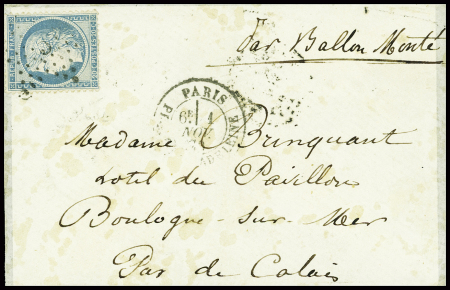 par Ballon Monté
PARIS
6E 1
NOV
Madame Brinquant
hotel du Pavillon
Boulogne-sur-Mer
Pas de Calais